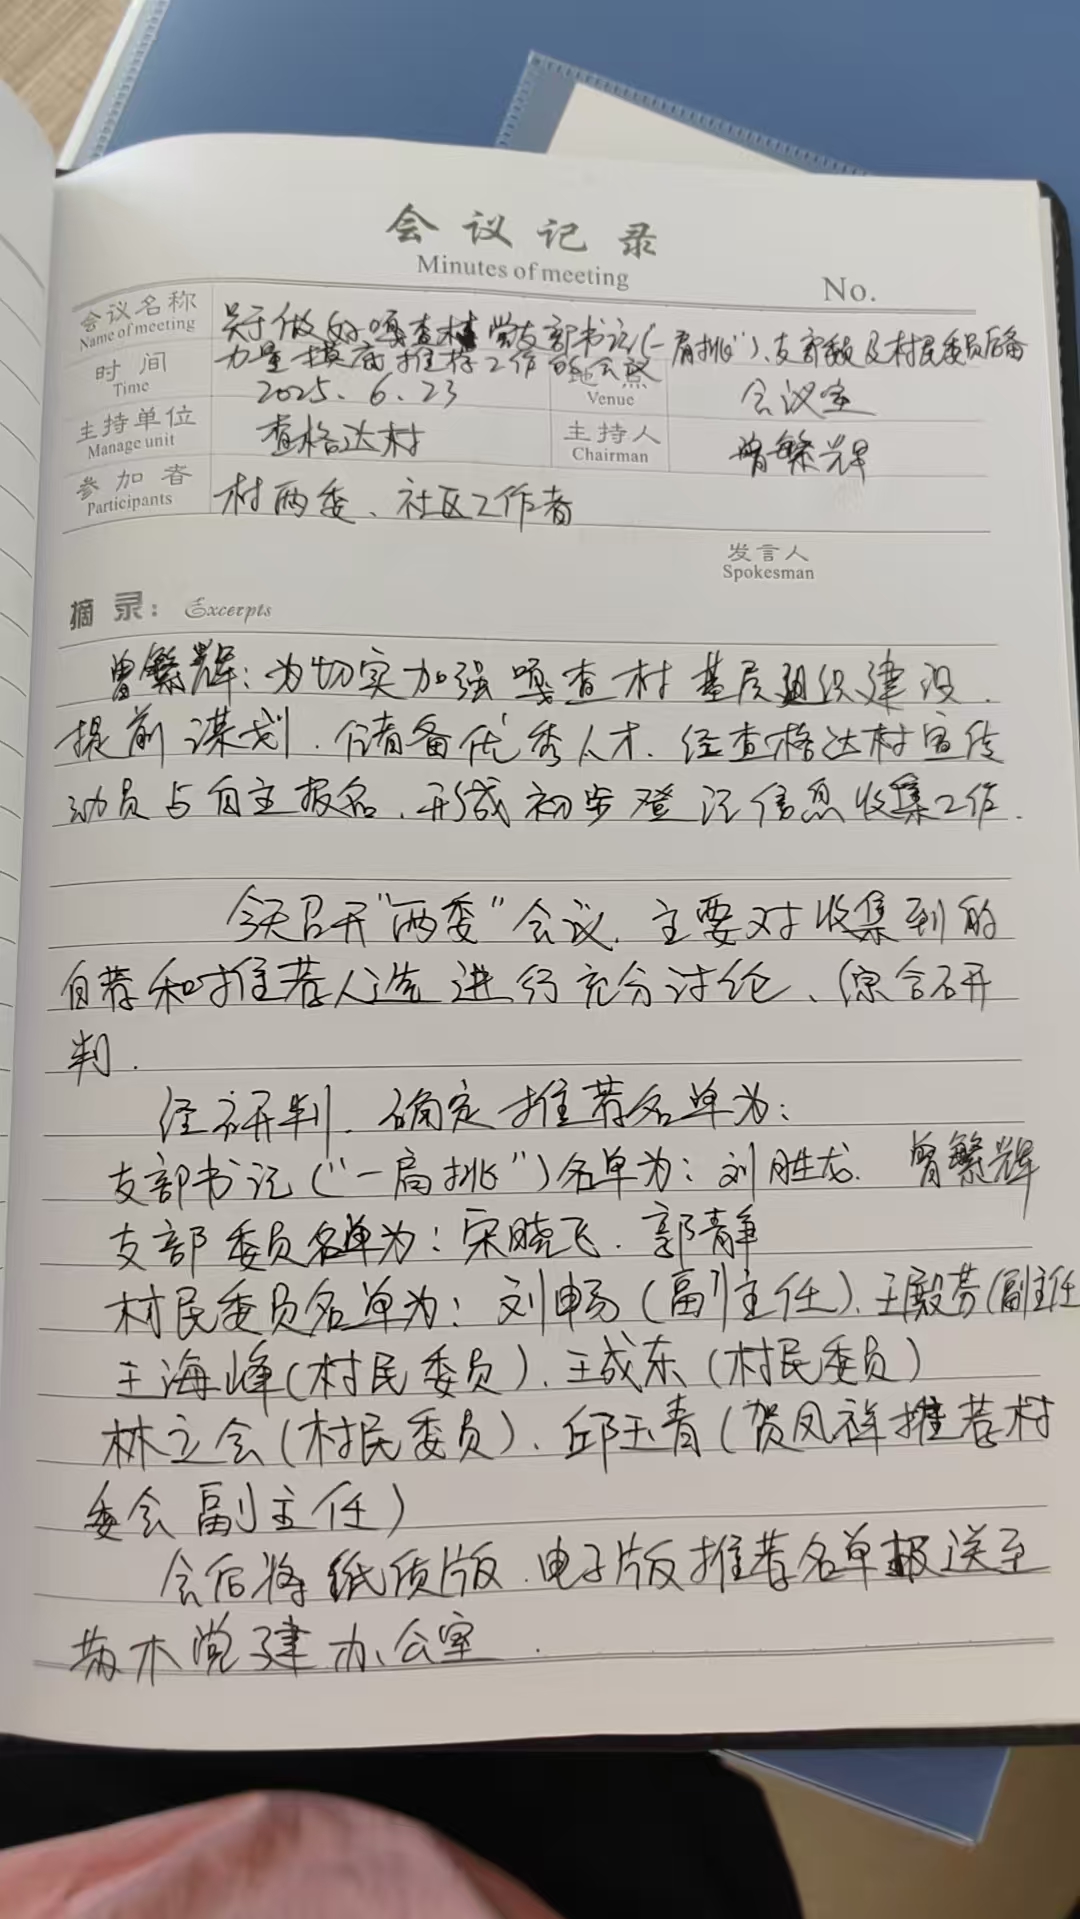 会议记录
Minutes of meeting
No.
会议名称
Name of meeting
关于做好嘎查村党支部书记("一肩挑")、支部委员及村民委员后备
力量摸底推荐工作的会议
时间
Time
2025.6.23
地点
Venue
会议室
主持单位
Manage unit
查格达村
主持人
Chairman
曾繁辉
参加者
Participants
村两委、社区工作者
发言人
Spokesman
摘录: Excerpts
曾繁辉:为切实加强嘎查村基层组织建设,
提前谋划,储备优秀人才,经查格达村宣传
动员与自主报名,形成初步登记信息收集工作.
今天召开"两委"会议,主要对收集到的
自荐和推荐人选进行充分讨论、综合研
判.
经研判,确定推荐名单为:
支部书记("一肩挑")名单为:刘胜龙 曾繁辉
支部委员名单为:宋晓飞、郭静
村民委员名单为:刘畅(副主任)、王殿芳(副主任
王海峰(村民委员)、王成东(村民委员)
林立会(村民委员)、邱玉青(贺凤祥推荐村
委会副主任)
会后将纸质版、电子版推荐名单报送至
苏木党建办公室.